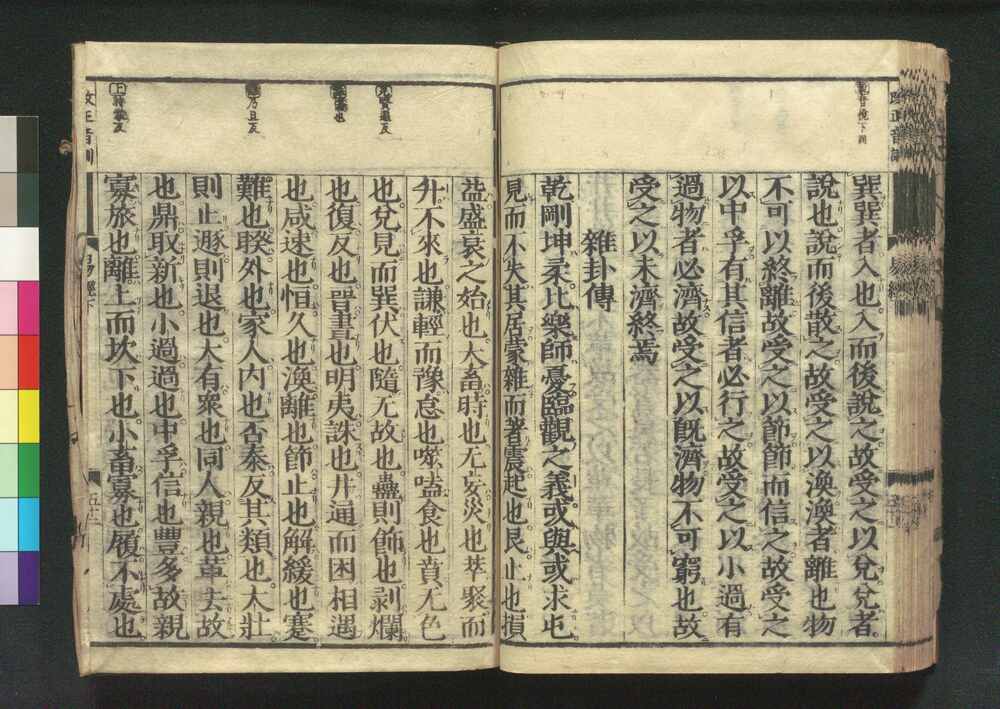 巽巽者入也入而後說之故受之以兌兌者
說也說而後散之故受之以渙渙者離也物
不可以終離故受之以節節而信之故受之
以中孚有其信者必行之故受之以小過有
過物者必濟故受之以旣濟物不可窮也故
受之以未濟終焉
雜卦傳
乾剛坤柔比樂師憂臨觀之義或與或求屯
見而不失其居蒙雜而著震起也艮止也損
益盛衰之始也大畜時也无妄災也萃聚而
升不來也謙輕而豫怠也噬嗑食也賁无色
也兌見而巽伏也隨无故也蠱則飾也剥爛
也復反也晋晝也明夷誅也井通而困相遇
也咸速也恒久也渙離也節止也解緩也蹇
難也睽外也家人内也否泰反其類也大壯
則止遯則退也大有衆也同人親也革去故
也鼎取新也小過過也中孚信也豐多故親
寡旅也離上而坎下也小畜寡也履不處也
易經下
五十二